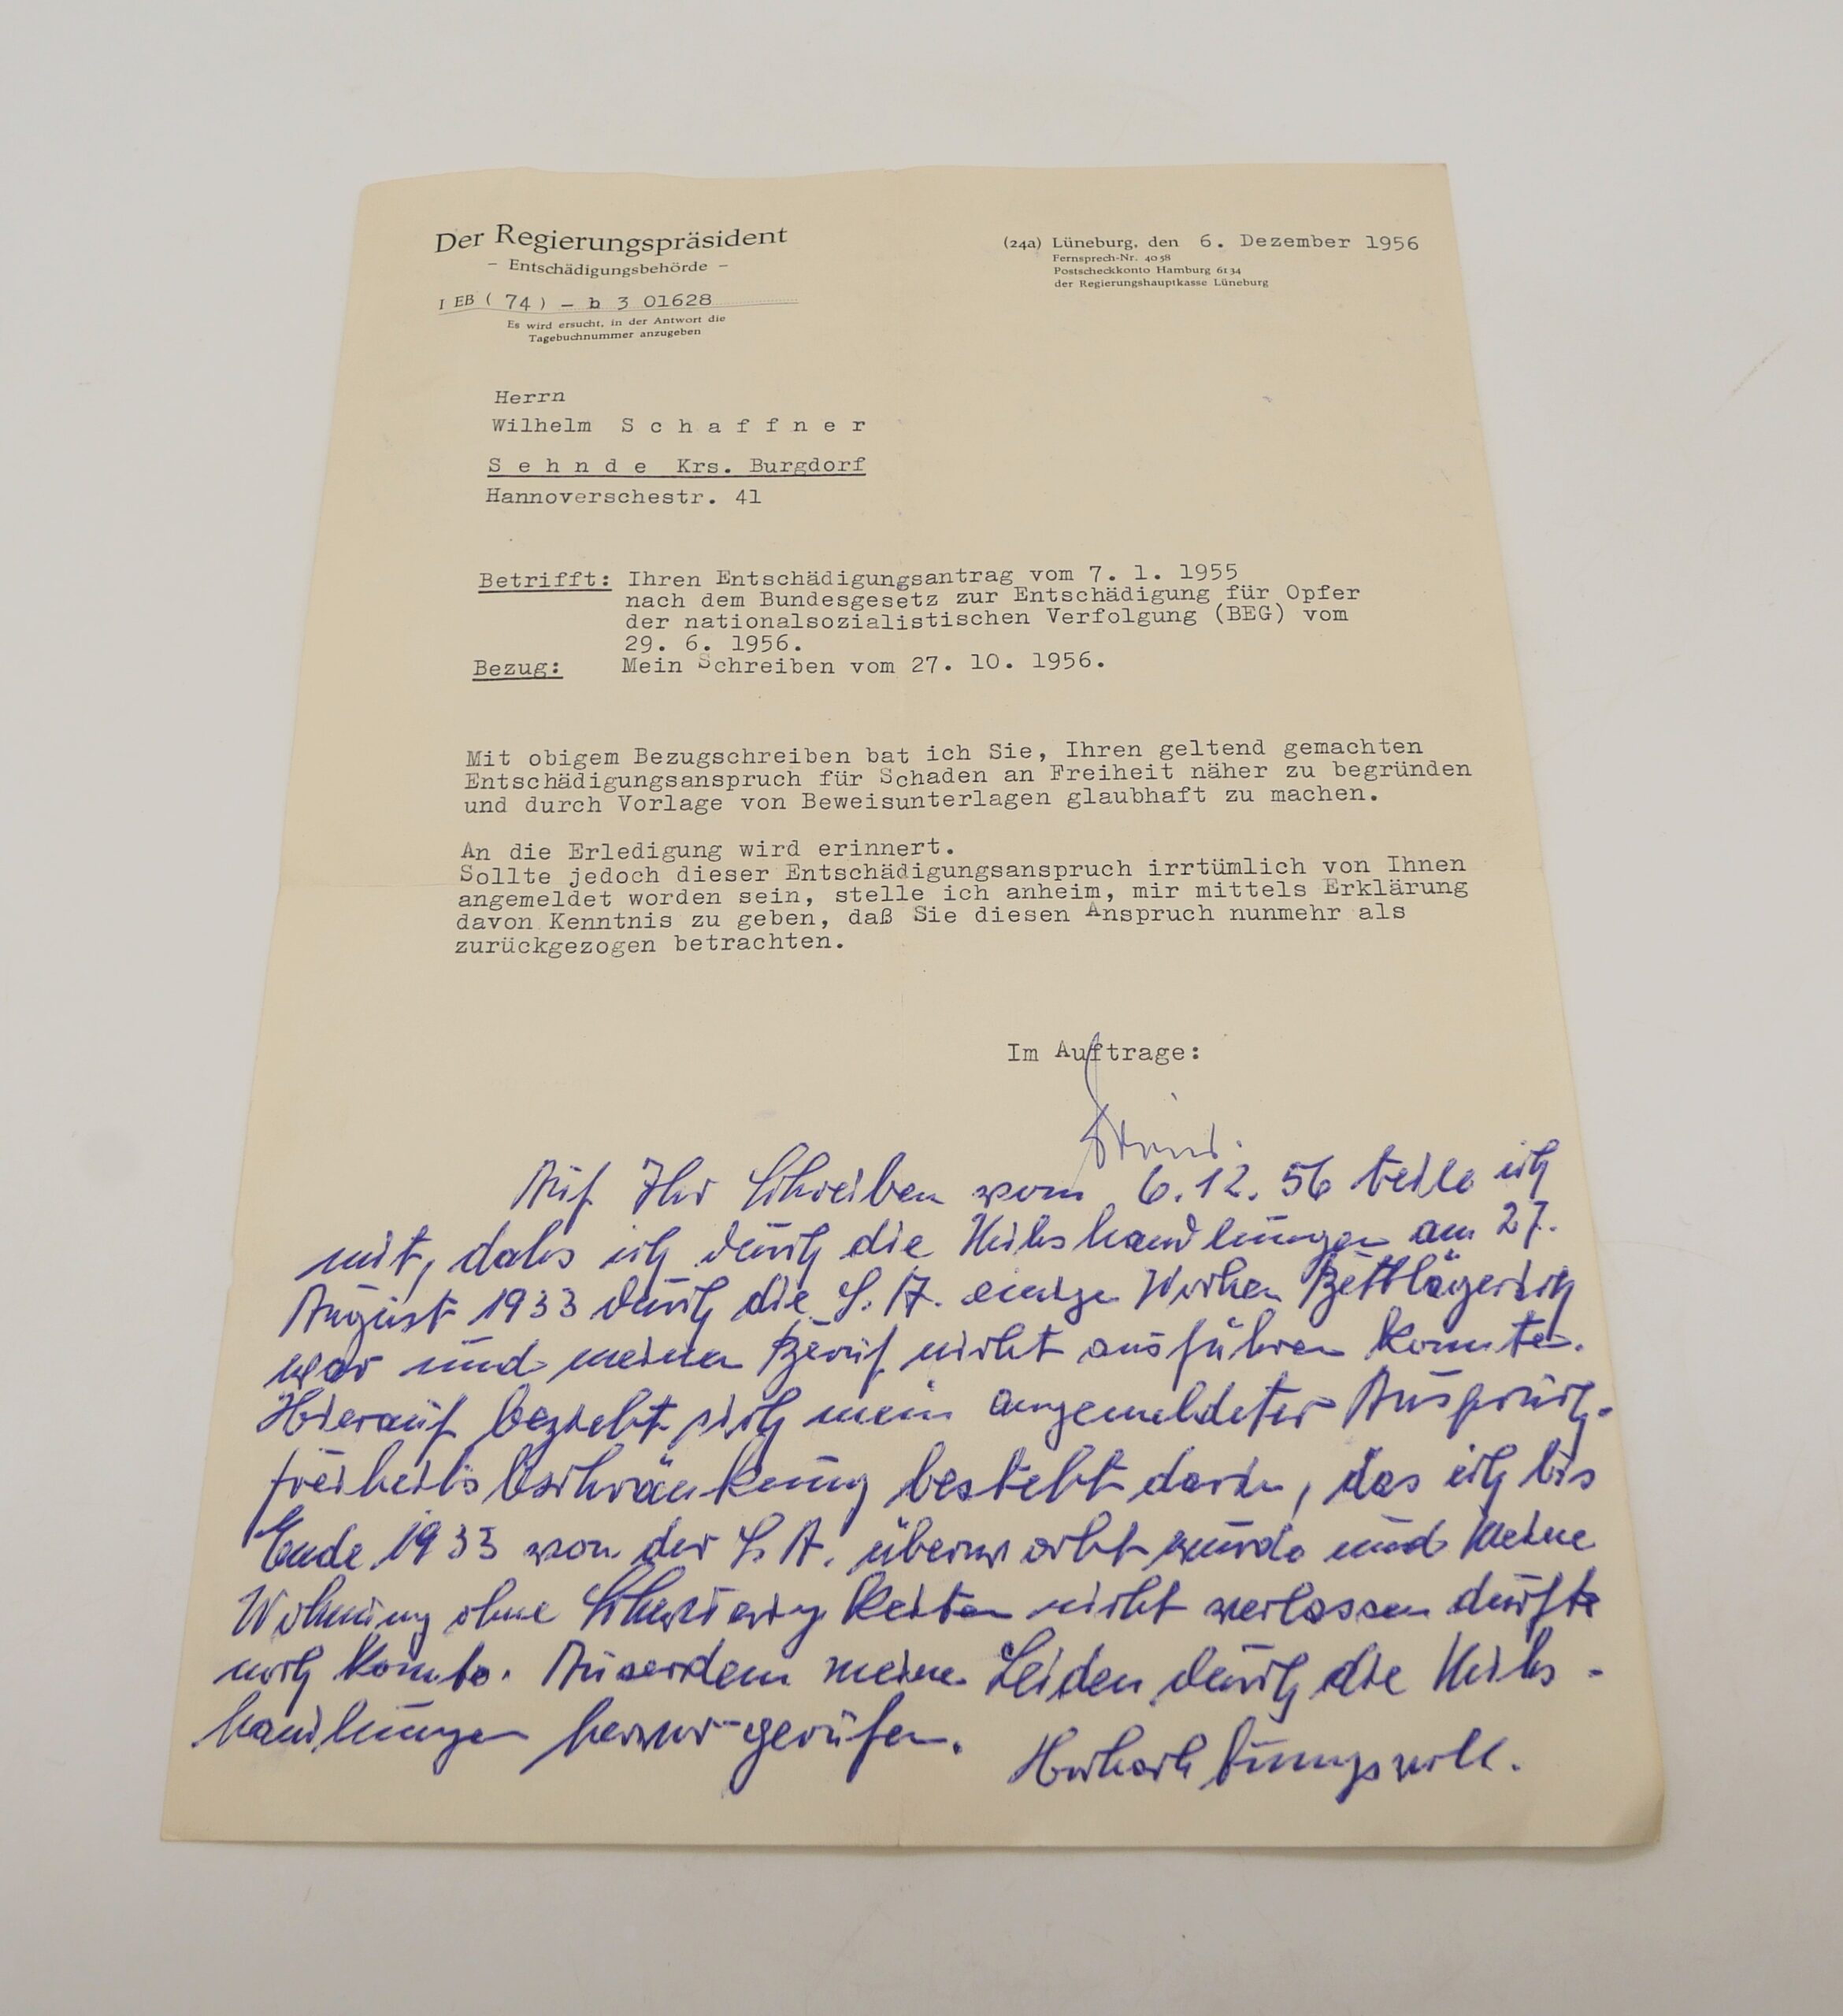 Der Regierungspräsident
– Entschädigungsbehörde –
I EB ( 74 ) – b 3 01628
Es wird ersucht, in der Antwort die
Tagebuchnummer anzugeben
(24a) Lüneburg, den 6. Dezember 1956
Fernsprech-Nr. 4058
Postscheckkonto Hamburg 6134
der Regierungshauptkasse Lüneburg
Herrn
Wilhelm S c h a f f n e r
S e h n d e Krs. Burgdorf
Hannoverschestr. 41
Betrifft: Ihren Entschädigungsantrag vom 7. 1. 1955
nach dem Bundesgesetz zur Entschädigung für Opfer
der nationalsozialistischen Verfolgung (BEG) vom
29. 6. 1956.
Bezug: Mein Schreiben vom 27. 10. 1956.
Mit obigem Bezugschreiben bat ich Sie, Ihren geltend gemachten
Entschädigungsanspruch für Schaden an Freiheit näher zu begründen
und durch Vorlage von Beweisunterlagen glaubhaft zu machen.
An die Erledigung wird erinnert.
Sollte jedoch dieser Entschädigungsanspruch irrtümlich von Ihnen
angemeldet worden sein, stelle ich anheim, mir mittels Erklärung
davon Kenntnis zu geben, daß Sie diesen Anspruch nunmehr als
zurückgezogen betrachten.
Im Auftrage:
Auf Ihr Schreiben vom 6.12.56 teile ich
mit, dahs ich durch die Mihshandlungen am 27.
August 1933 durch die S.A. einige Wochen Bettlägerich
war und meinen Beruf nicht ausführen konnte.
Hierauf bezieht sich mein angemeldeter Anspruch.
Freiheitsbeschränkung besteht darin, das ich bis
Ende 1933 von der S.A. überwacht wurde und meine
Wohnung ohne Schwierigkeiten nicht verlassen durfte
noch konnte. Auserdem meine Leiden durch die Mihs-
handlungen hervor-gerufen.
Hochachtungsvoll.